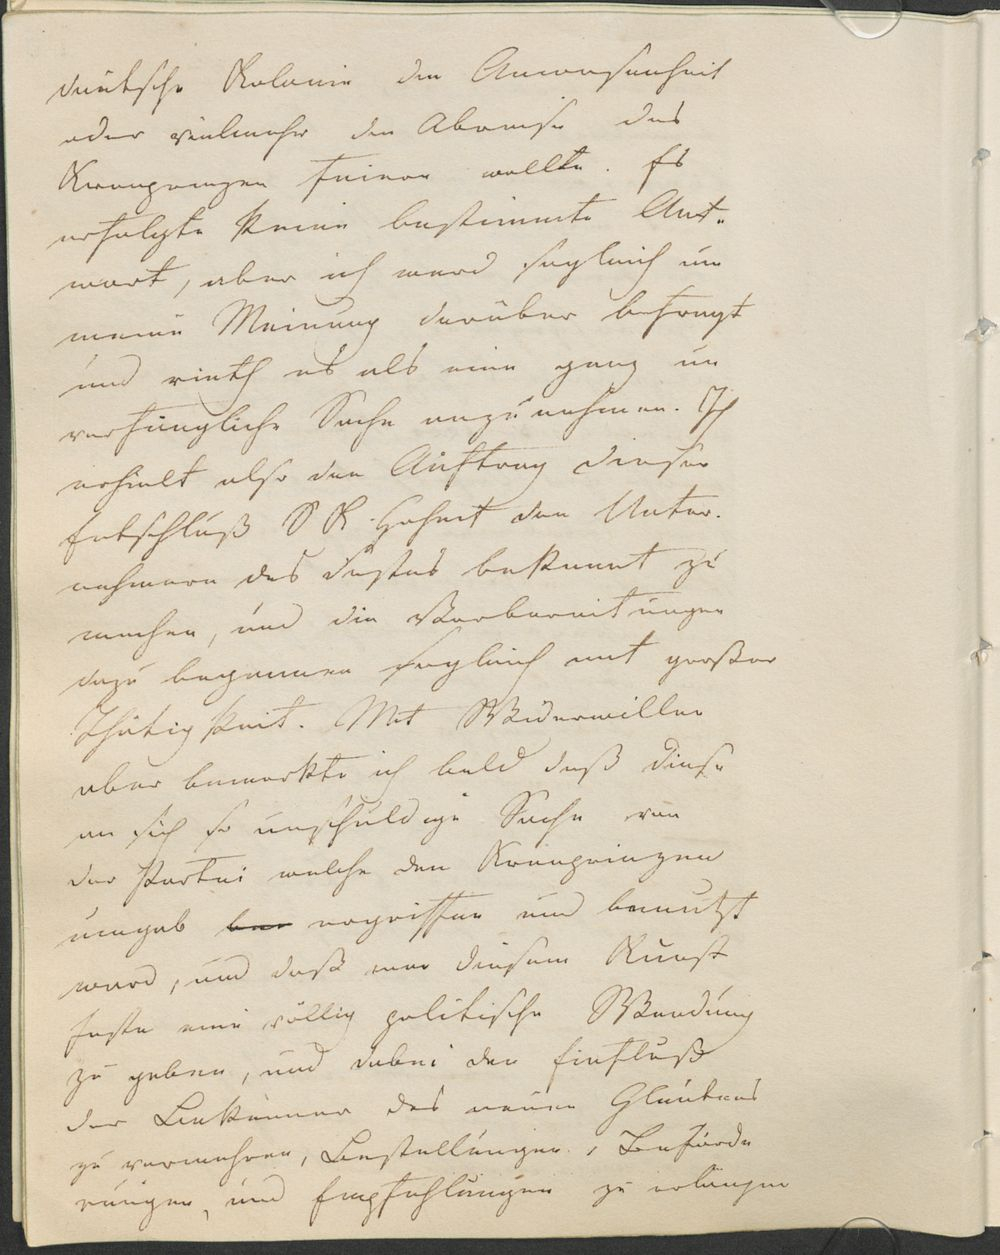 deutsche Kolonie den Anwesenheit
oder vielmehr den Abreise des
Kronprinzen feiern wollte. Es
erfolgte keine bestimmte Ant-
wort, aber ich ward sogleich um
meine Meinung darüber befragt
und rieth es als eine ganz un
verfängliche Sache anzunehmen. Ich
erhielt also den Auftrag diesen
Entschluß S K. Hoheit den Unter-
nehmern des Festes bekannt zu
machen, und die Vorbereitungen
dazu begannen sogleich mit großer
Thätigkeit. Mit Widerwillen
aber bemerkte ich bald daß diese
an sich so unschuldige Sache von
der Partei welche den Kronprinzen
umgab ergriffen und benutzt
ward, und daß man diesem Kunst
feste eine völlig politische Wendung
zu geben, und dabei den Einfluß
der Bekenner des neuen Glaubens
zu vermehren, Bestellungen, Beförde
rungen, und Empfehlungen zu erlangen